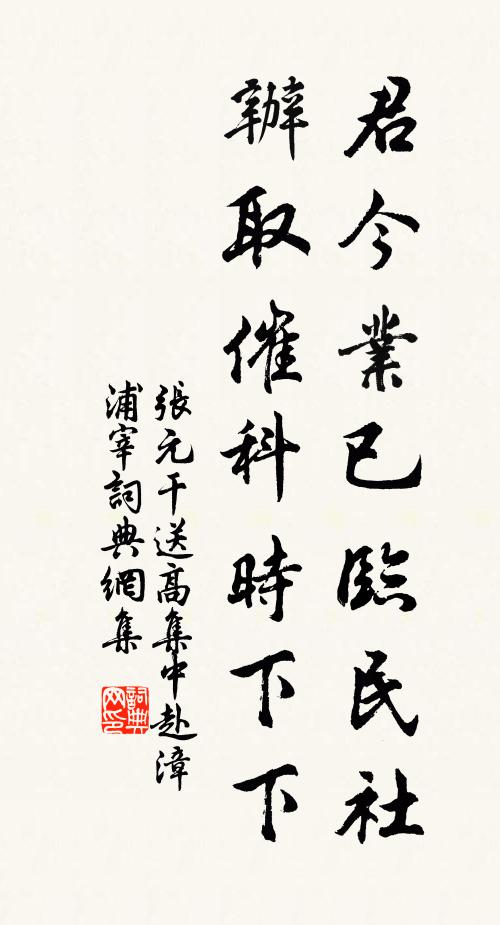 君今業已臨民社
辦取催科時下下
張元干送高集中赴漳
浦宰詞典網集
詞典网印